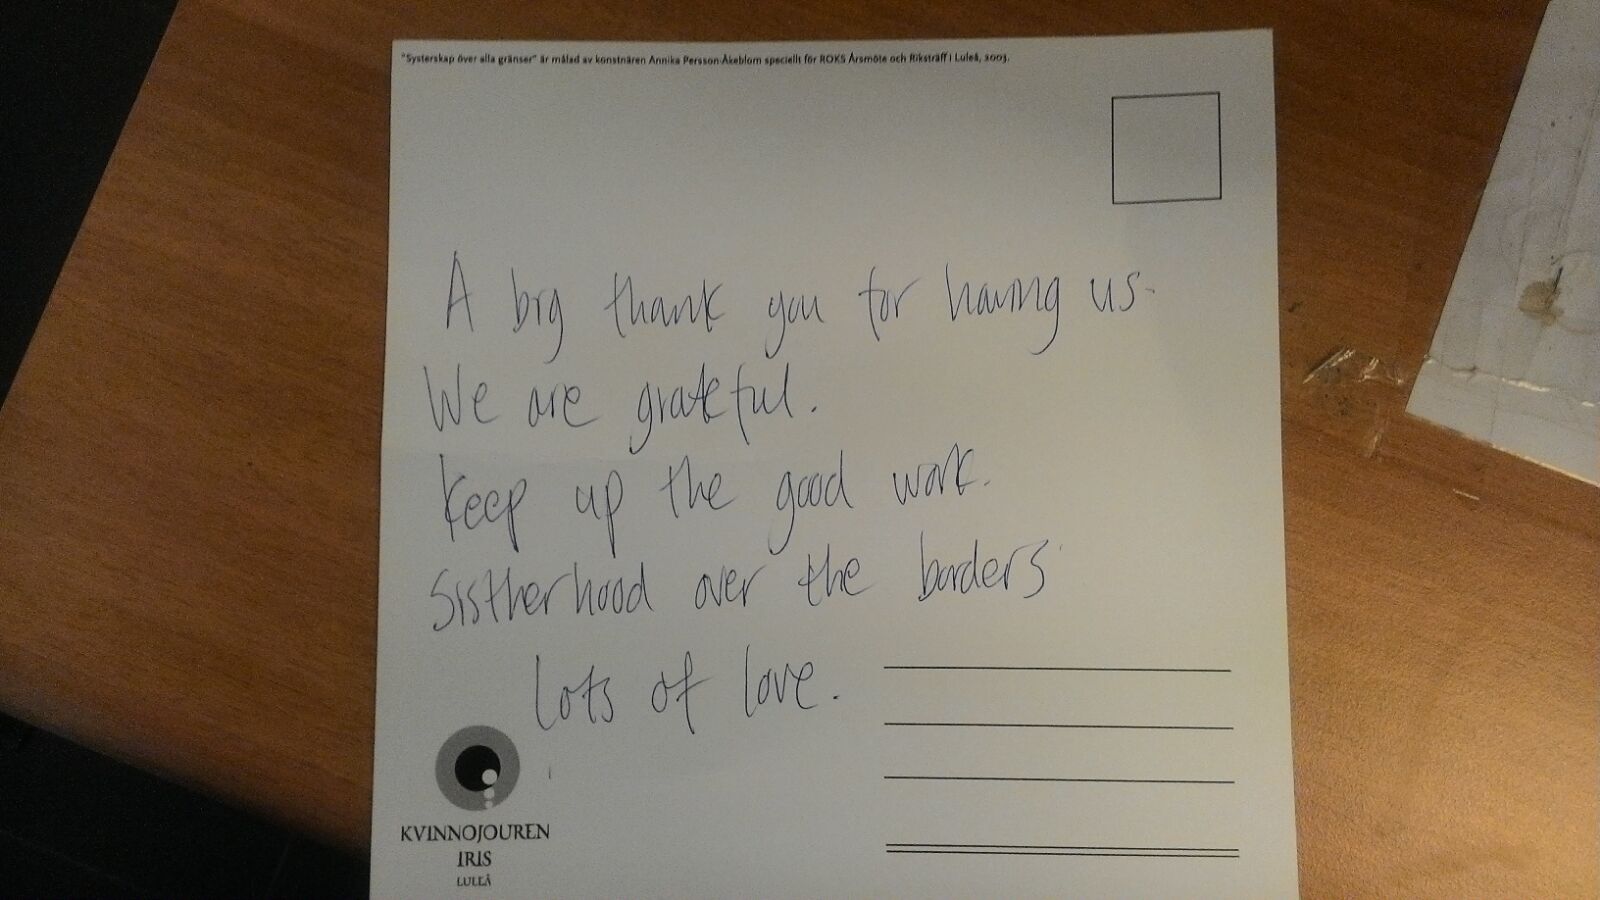 "Systerskap över alla gränser" är målad av konstnären Annika Persson-Åkeblom speciellt för ROKS Årsmöte och Riksträff i Luleå, 2003.
A big thank you for having us.
We are grateful.
Keep up the good work.
Sistherhood over the borders
Lots of love.
KVINNOJOUREN
IRIS
LULEÅ